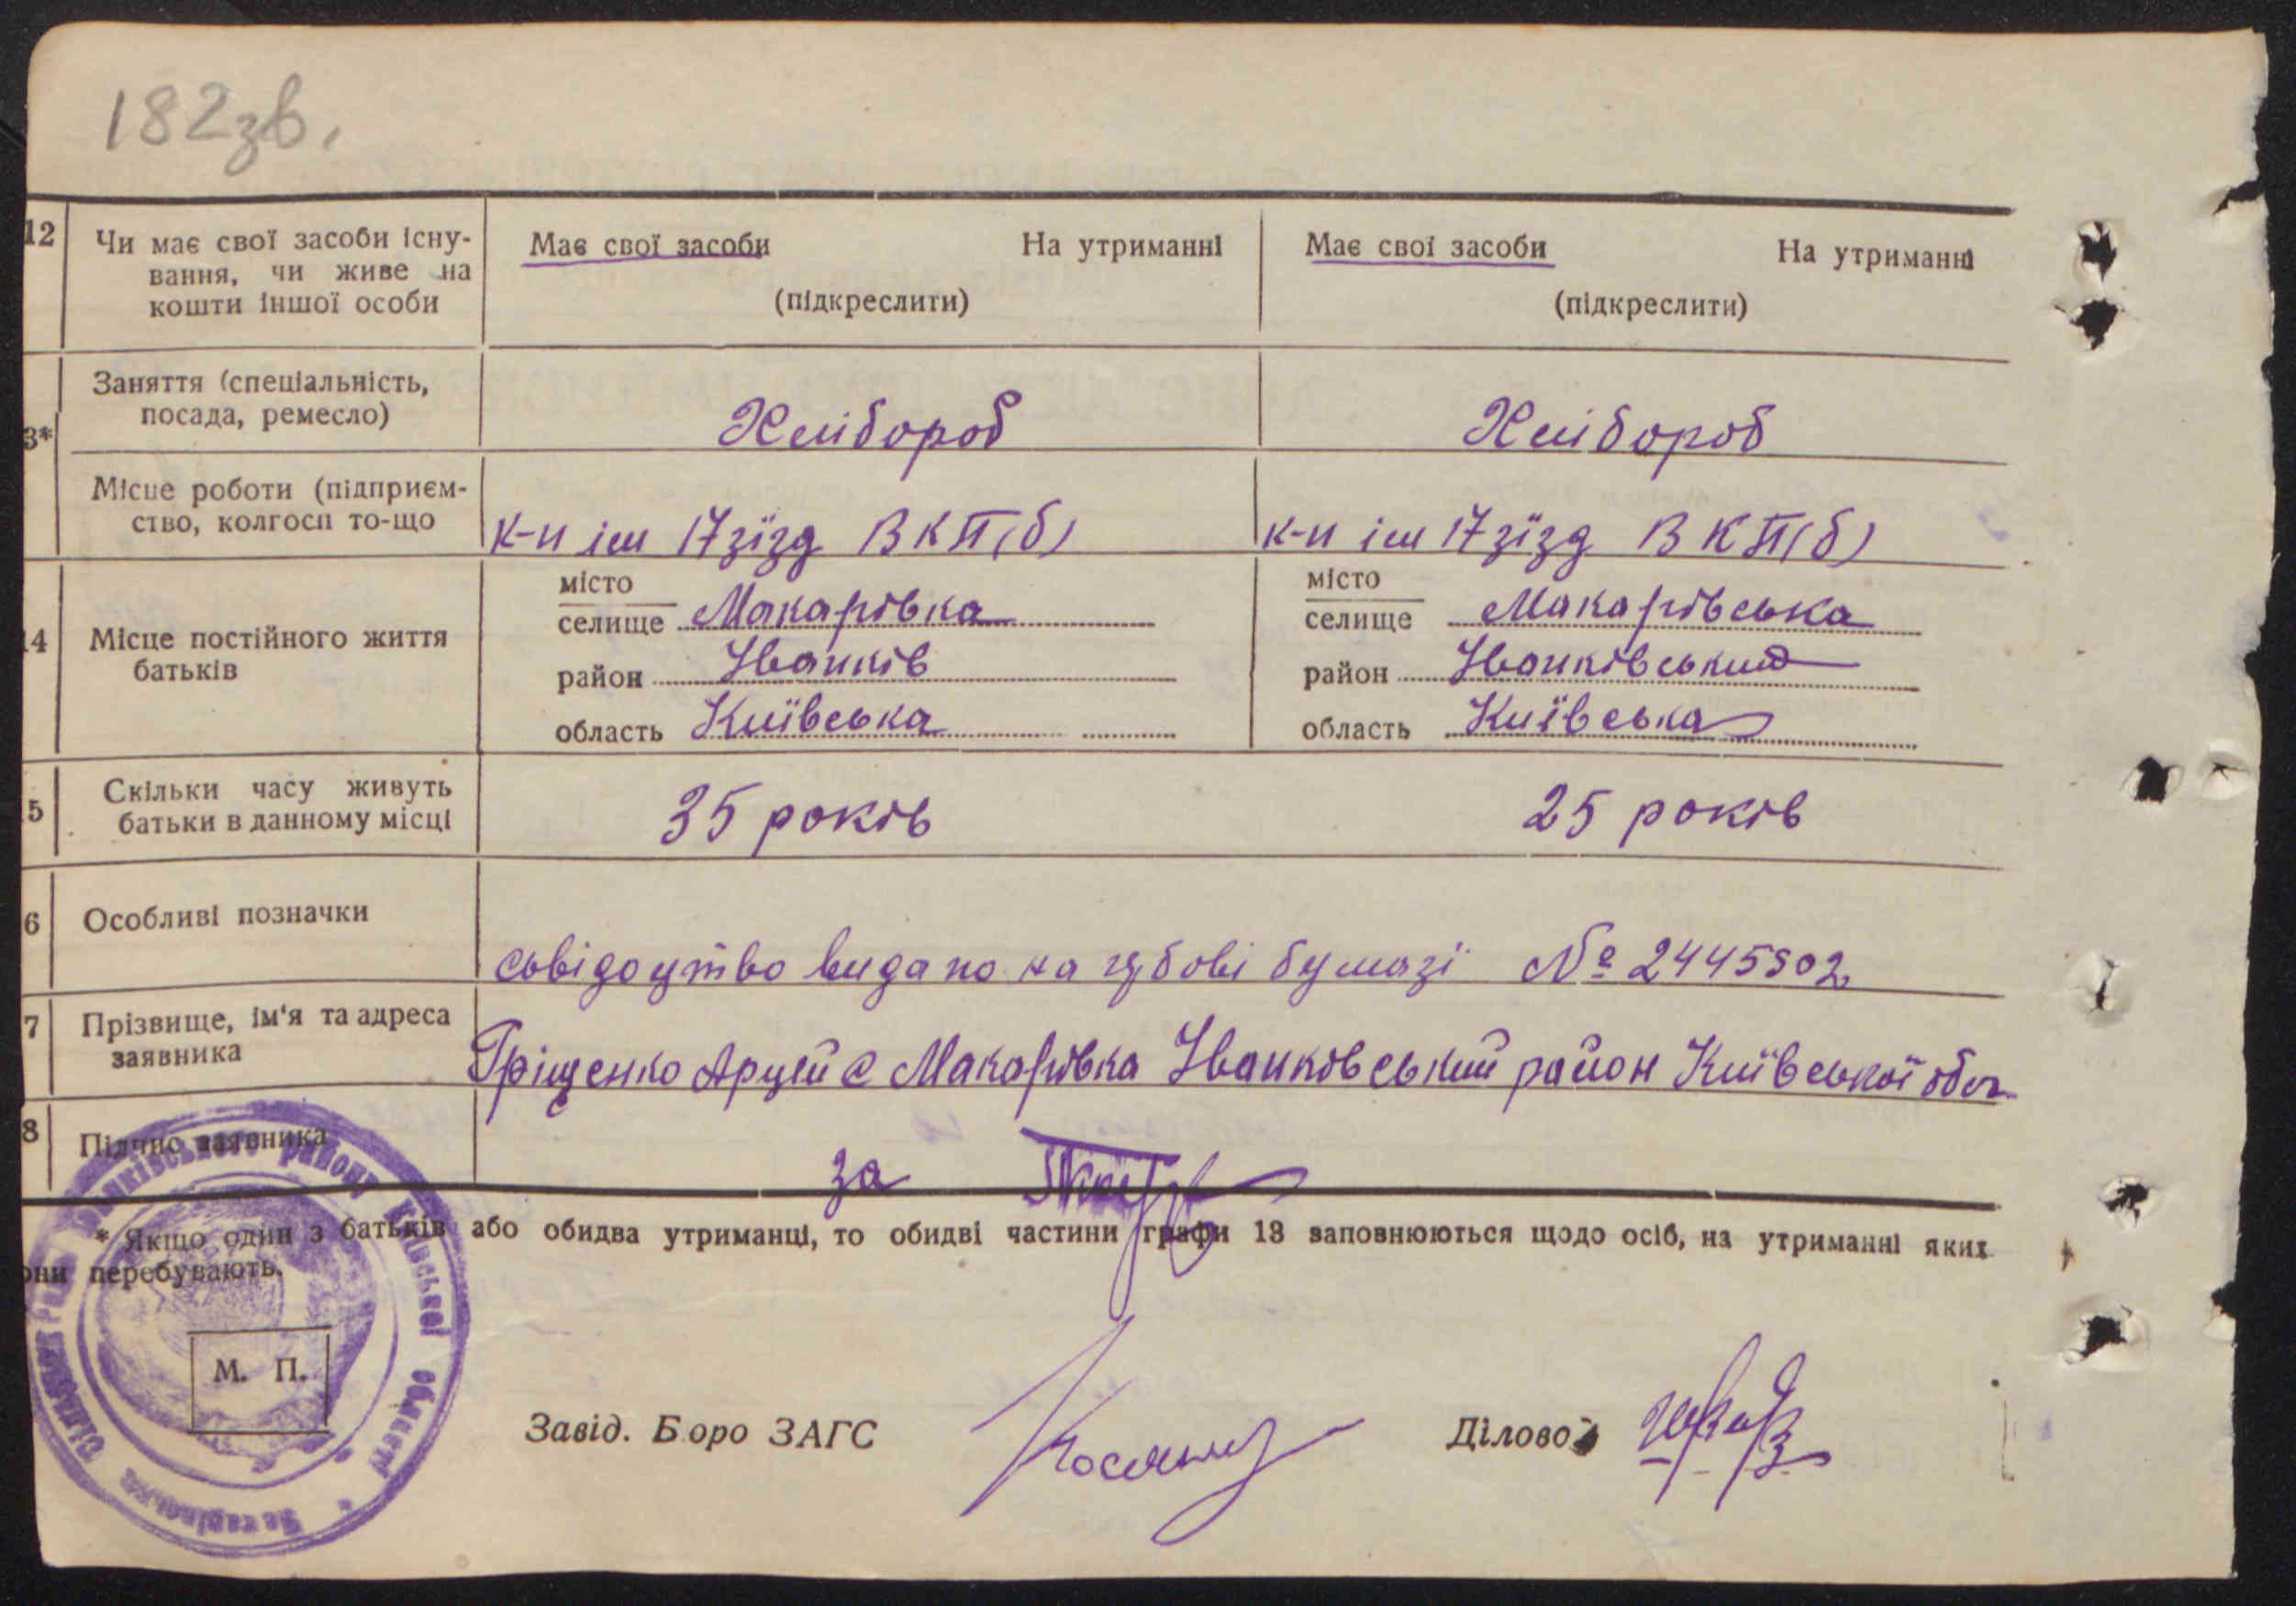 182зв.
12 Чи має свої засоби існу-
вання, чи живе на
кошти іншої особи
Має свої засоби На утриманні
(підкреслити)
Має свої засоби На утриманні
(підкреслити)
3*
Заняття (спеціальність,
посада, ремесло)
Хлібороб
Хлібороб
Місце роботи (підприєм-
ство, колгосп то-що
к-п ім 17 зїзд ВКП(б)
к-п ім 17 зїзд ВКП(б)
14 Місце постійного життя
батьків
місто
селище Макарівка
район Іванків
область Київська
місто
селище Макарівська
район Іванківський
область Київська
5 Скільки часу живуть
батьки в данному місці
35 років
25 років
6 Особливі позначки
видано на бумазі №
7 Прізвище, ім'я та адреса
заявника
Гріщенко с Макарівка Іванківський район Київської обл.
8 Підчис заявника
за
* Якщо один з батьків або обидва утриманці, то обидві частини графи 13 заповнюються щодо осіб, на утриманні яких
они перебувають.
М. П.
Завід. Боро ЗАГС
Ділової
району Київської Області * Макарівська Сільська Рада Іванківського